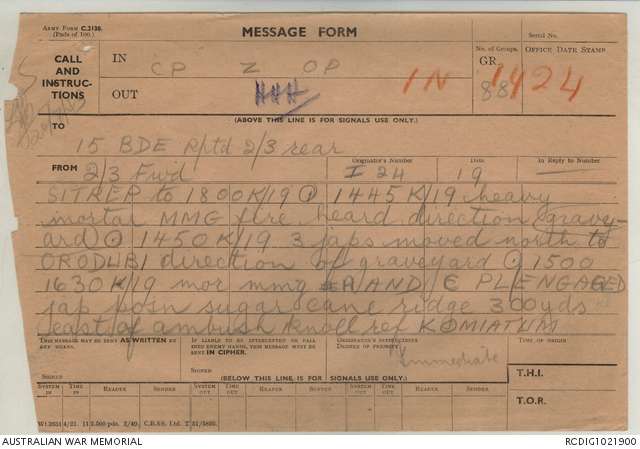 ARMY FORM C.2136.
(Pads of 100.)
MESSAGE FORM
Serial No.
CALL
AND
INSTRUC-
TIONS
IN
CP Z OP
OUT
HHH
1N 1424
No. of Groups.
GR.
88
OFFICE DATE STAMP
(ABOVE THIS LINE IS FOR SIGNALS USE ONLY.)
TO
15 BDE Rptd 2/3 rear
FROM
2/3 Fwd
Originator's Number
I 24
Date
19
In Reply to Number
SITREP to 1800K/19 ⊙ 1445 K/19 heavy
mortar MMG fire heard direction (grave-
yard) ⊙ 1450K/19 3 japs moved north to
ORODUBI direction of graveyard ⊙ 1500
1630 K/19 mor mmg AND C PL ENGAGED
jap posn sugar cane ridge 300yds
east of ambush knoll ref KOMIATUM
THIS MESSAGE MAY BE SENT AS WRITTEN BY
ANY MEANS.
SIGNED
IF LIABLE TO BE INTERCEPTED OR FALL
INTO ENEMY HANDS, THIS MESSAGE MUST BE
SENT IN CIPHER.
SIGNED
ORIGINATOR'S INSTRUCTIONS
DEGREE OF PRIORITY
Immediate
TIME OF ORIGIN
(BELOW THIS LINE IS FOR SIGNALS USE ONLY.)
T.H.I.
T.O.R.
SYSTEM IN TIME IN READER SENDER SYSTEM OUT TIME OUT READER SENDER SYSTEM OUT TIME OUT READER SENDER
AUSTRALIAN WAR MEMORIAL
RCDIG1021900